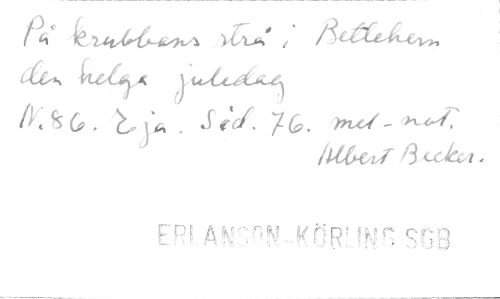 På krubbans strå i Betlehem
den helga juledag
N.86. Eja. Sid. 76. mel-not.
Albert Becker.
ERLANSON-KÖRLING SGB